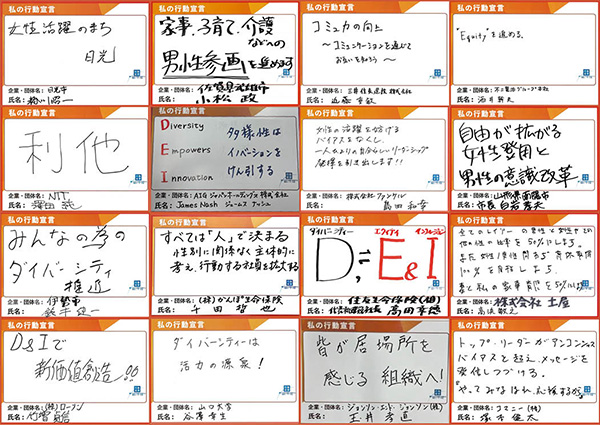 私の行動宣言
女性活躍のまち
日光
企業・団体名：日光市
氏名：
私の行動宣言
家事、子育て、介護
などへの
男性参画を進めます
企業・団体名：佐賀県武雄市
氏名：小松 政
私の行動宣言
コミュ力の向上
～コミュニケーションを通じて
お互いを知ろう～
企業・団体名：三井住友建設株式会社
氏名：近藤重敏
私の行動宣言
"Equity"を進める。
企業・団体名：不二製油グループ本社
氏名：酒井幹夫
私の行動宣言
利他
企業・団体名：NTT
氏名：澤田 純
Diversity
Empowers
Innovation
多様性は
イノベーションを
けん引する
企業・団体名：AIGジャパン・ホールディングス株式会社
氏名：James Nash ジェームス ナッシュ
私の行動宣言
女性の活躍を妨げる
バイアスをなくし、
一人ひとりの自分らしいリーダーシップ
発揮を引き出します!!
企業・団体名：株式会社ファンケル
氏名：島田和幸
私の行動宣言
自由が拡がる
女性登用と
男性の意識改革
企業・団体名：山形県南陽市
氏名：市長 白岩孝夫
私の行動宣言
みんなの為の
ダイバーシティ
推進
企業・団体名：伊勢市
氏名：鈴木健一
私の行動宣言
すべては「人」で決まる
性別に関係なく主体的に
考え、行動する社員を拡大する
企業・団体名：(株)かんぽ生命保険
氏名：千田哲也
私の行動宣言
ダイバーシティー
エクイティ
インクルージョン
D,⇄E&I
企業・団体名：住友生命保険(相)
氏名：高田幸徳
私の行動宣言
企業・団体名：株式会社 土屋
氏名：高浜敏之
私の行動宣言
D&Iで
新価値創造!!
企業・団体名：(株)ローソン
氏名：竹増貞信
私の行動宣言
ダイバーシティーは
活力の源泉！
企業・団体名：山口大学
氏名：谷澤幸生
私の行動宣言
皆が居場所を
感じる組織へ！
企業・団体名：ジョンソン・エンド・ジョンソン(株)
氏名：玉井孝直
私の行動宣言
トップ・リーダーがアンコンシャス
バイアスを超え、メッセージを
変化しつづける。
"やってみなはれ、応援するから"
企業・団体名：コマニー(株)
氏名：塚本健太